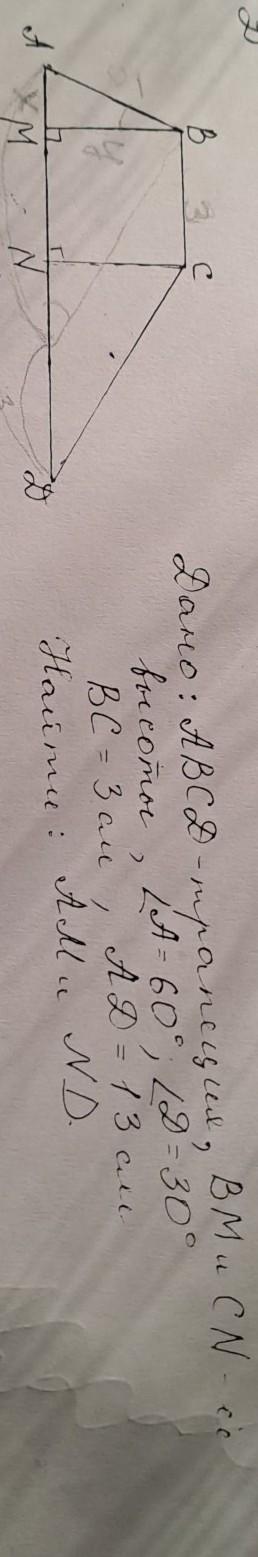 2
A
B
C
D
M
N
5
x
y
3
3
Дано: ABCD - трапеция, BM и CN - её
высоты, ∠A = 60°, ∠D = 30°
BC = 3 см, AD = 13 см
Найти: AM и ND.